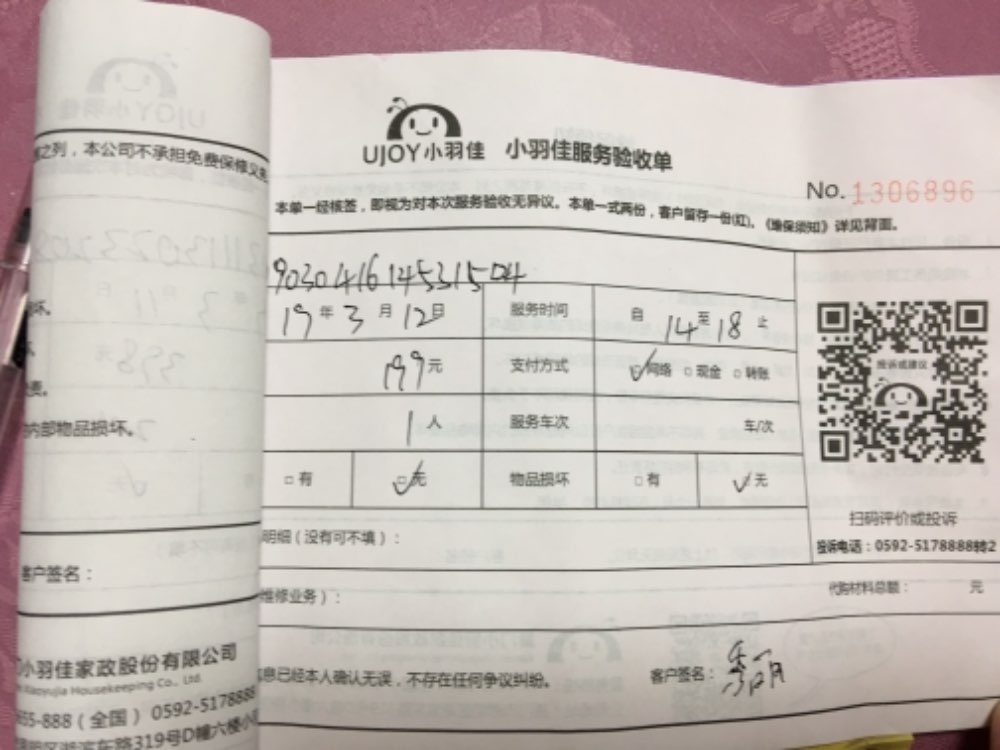 UJOY小羽佳 小羽佳服务验收单
No. 1306896
本单一经核签，即视为对本次服务验收无异议。本单一式两份，客户留存一份(红)。《维保须知》详见背面。
903041614531504
19年3月12日 服务时间 自14至18止
199元 支付方式 网络 现金 转账
1人 服务车次 车/次
有 无 物品损坏 有 无
明细（没有可不填）：
投诉或建议
扫码评价或投诉
投诉电话：0592-5178888转2
维修业务）：
代购材料总额： 元
息已经本人确认无误，不存在任何争议纠纷。 客户签名：
之列，本公司不承担免费保修义务
坏。
费。
内部物品损坏。
客户签名：
小羽佳家政股份有限公司
Xiaoyujia Housekeeping Co., Ltd.
855-888（全国） 0592-5178888
湖滨东路319号D幢六楼小